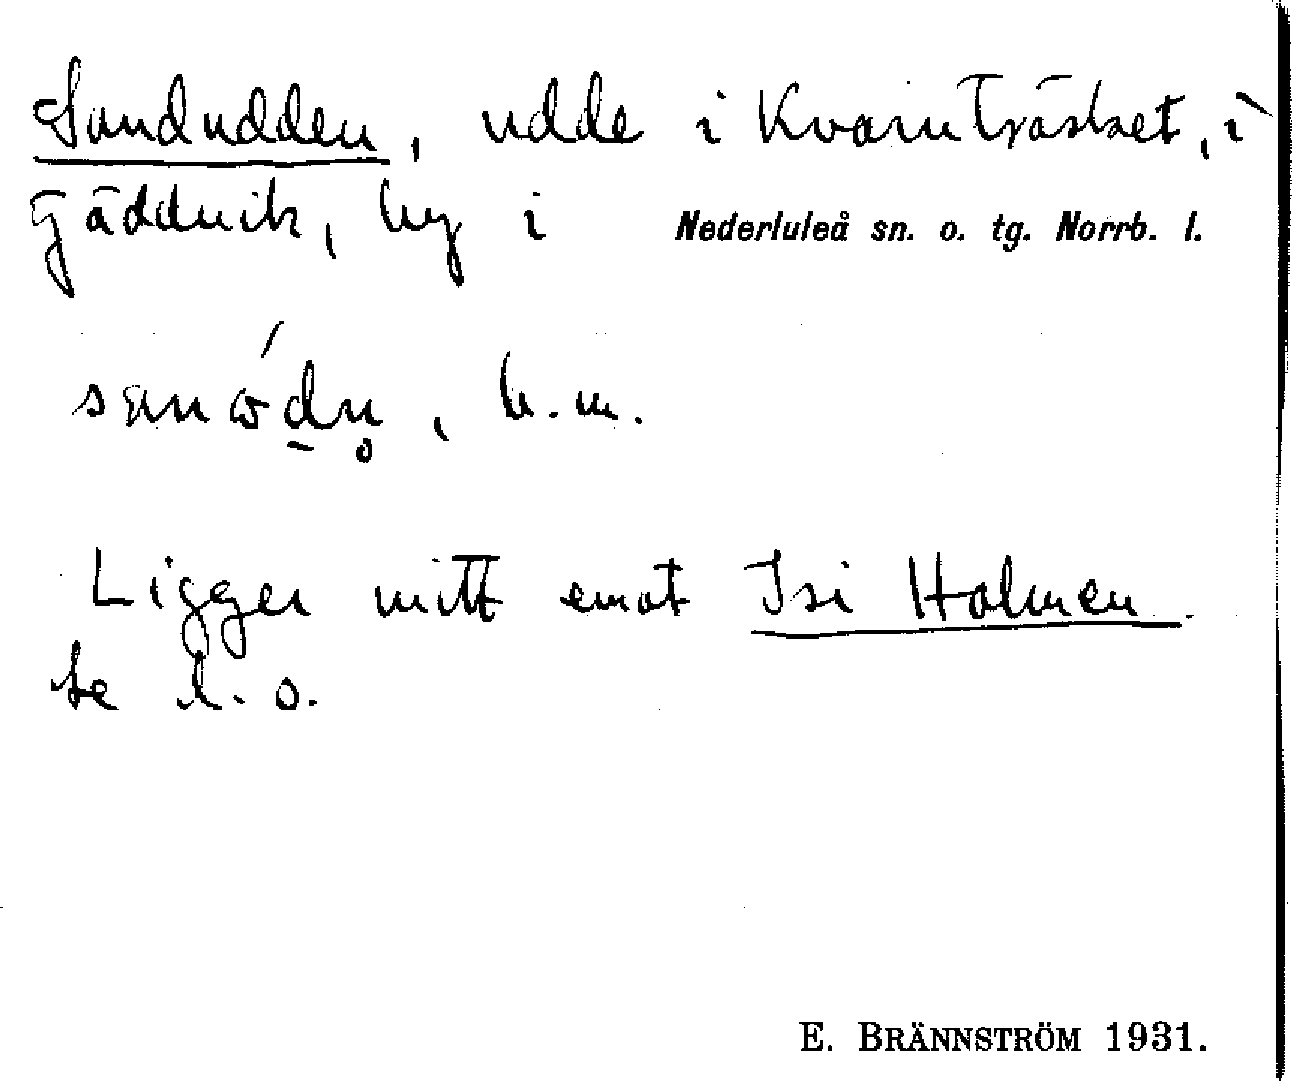 Sandudden, udde i Kvarnträsket, i
Gäddvik, by i Nederluleå sn. o. tg. Norrb. l.
b. m.
Ligger mitt emot Isi Holmen
se l. o.
E. BRÄNNSTRÖM 1931.